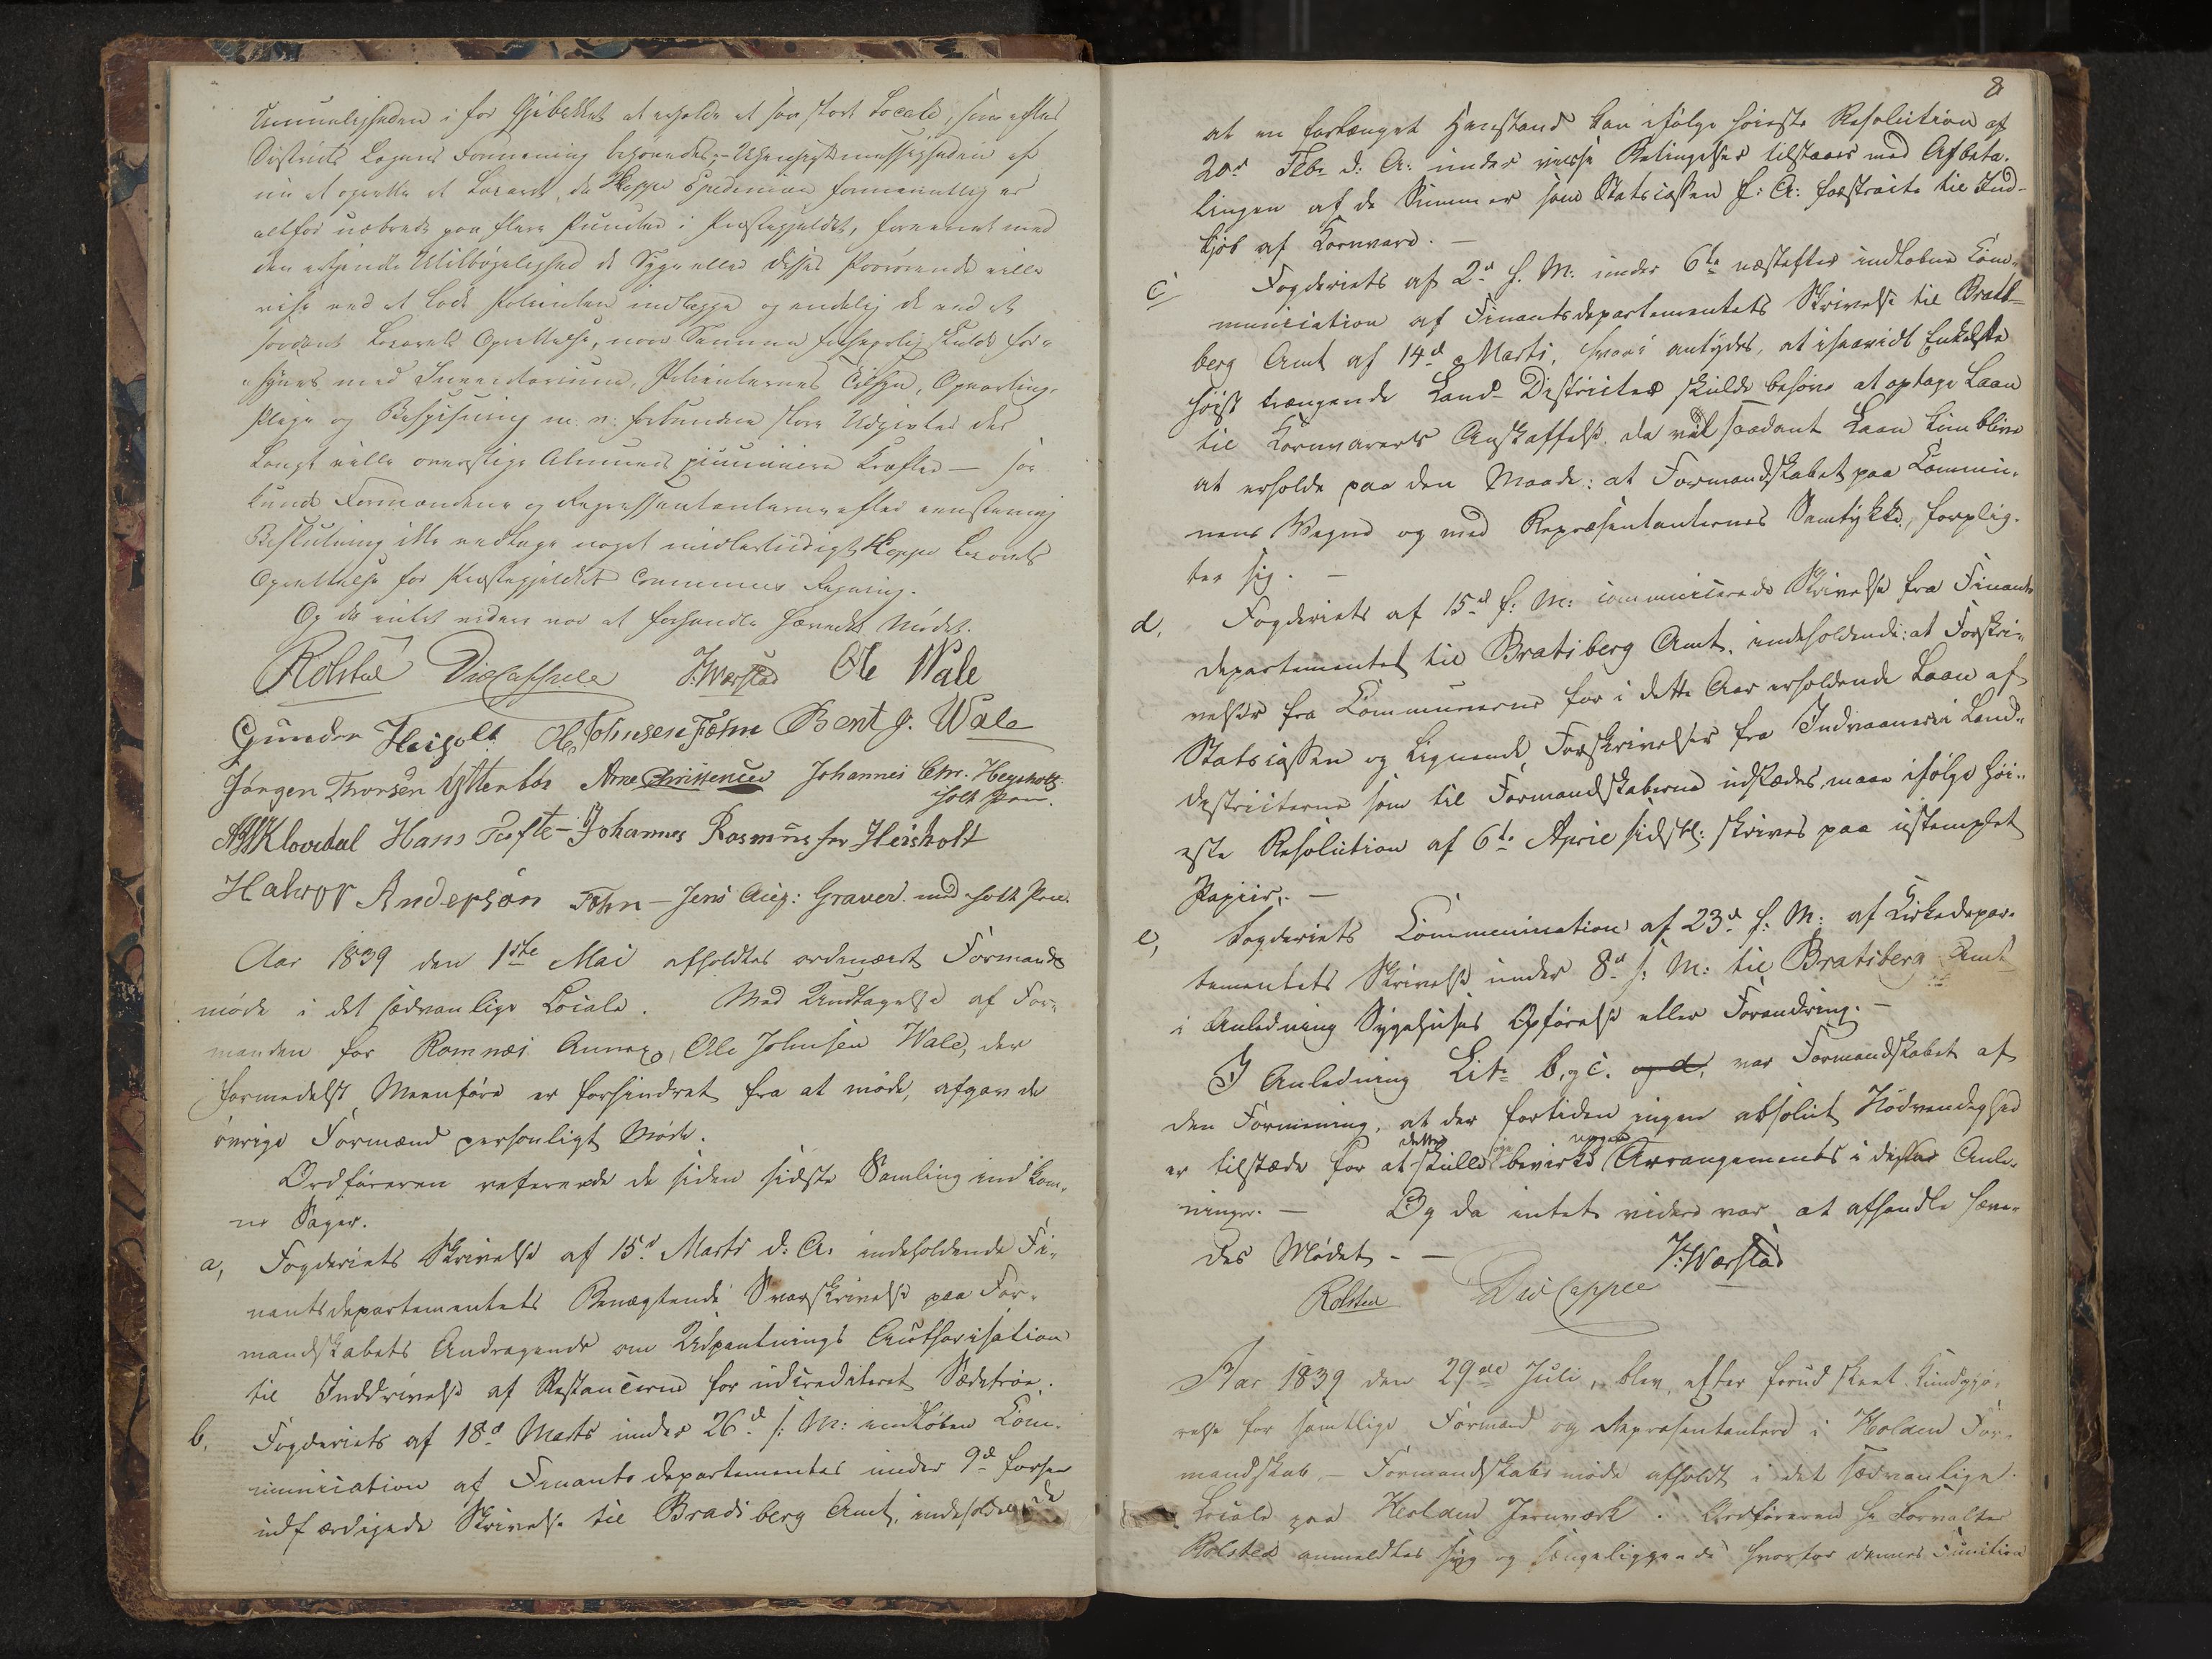 Umueligheden i for Øiebliket at erholde et saa stort Locale, som efter
Districts Lægens Formening behøvedes, - Uhensigtsmæssigheden af
nu at oprette et Lazareth, da Koppe Epedemien formeentlig er
altfor udbredt paa flere Puncter i Præstegjeldet, foreenet med
den erkjendte Utilbøjelighed de Syge eller disses Paarørende ville
vise ved at lade Patienter indlægge og endelig de ved et
saadant Lazareths Oprettelse, naar Samme forsvarlig skulde for-
synes med Inventarium, Patienternes Tilsyn, Opvartning,
Pleje og Bespisning m. v. forbundne store Udgivter der
langt ville overstige Almuens pecuniære Kræfter — saa
kunde Formændene og Repræsentanterne efter eenstemmig
Beslutning ikke vedtage noget midlertidigt Koppe Lazareths
Oprettelse for Præstegjeldets Communes Regning.
Og da intet videre var at forhandle hævedes Mødet.
Rolsted DidCappelen J. Wærstad Ole Wale
Gunder Heisholt H. Johnsen Fæhn Bent J. Wale
Jørgen Thorsen Ytterbøe Arne Christensen Johannes Chr. Heisholt
holt Pen.
Klovdal Hans Tufte - Johannes Rasmussen Heisholt
Halvor Anderson Fæhn - Jens Aug: Graver. med holt Pen.
Aar 1839 den 1ste Mai afholdtes ordinært Formands
møde i det sædvanlige Locale. Med Undtagelse af For-
manden for Romnæs Annex, Ole Johnsen Wale, der
formedelst Meenføre er forhindret fra at møde, afgav de
øvrige Formænd personligt Møde.
Ordføreren refererede de siden sidste Samling indkom-
ne Sager.
a, Fogderiets Skrivelse af 15d Marts d: A: indeholdende Fi-
nantsdepartementets Benægtende Svarskrivelse paa For-
mandskabets Andragende om Udpantnings Authorisation
til Inddrivelse af Restancerne for udcrediteret Sædetræe.
b. Fogderiets af 18d Marts under 26d s: M: indløbne Com-
munication af Finants departementes under 9d forhen
udfærdigede Skrivelse til Bradsberg Amt, indeholdende
8
at en forlænget Henstand kan ifølge høieste Resolution af
20d Febr d: A: under visse Betingelser tilstaaes med Afbeta-
lingen af de Summer som Statscassen f: A: forstrakte til Ind-
kjøb af Kornvare. —
c Fogderiets af 2d f. M: under 6te næstefter indløbne Com-
munication af Finantsdepartementets Skrivelse til Brats-
berg Amt af 14d Marts, hvori antydes, at isaavidt Enkelte
høist trængende Land-Districter skulde behøve at optage Laan
til Kornvarers Anskaffelse, da vil saadant Laan kun blive
at erholde paa den Maade: at Formandskabet paa Commu-
nens Vegne og med Repræsentanternes Samtykke, forplig-
ter sig. —
d. Fogderiets af 15d f: M: communicerede Skrivelse fra Finants
departementet til Bratsberg Amt, indeholdende: at Forskri-
velser fra Communerne for i dette Aar erholdende Laan af
Statscassen og lignende Forskrivelser fra Indvaanere i Land-
districterne som til Formandskaberne udstædes, maae ifølge høi-
este Resolution af 6te April sidstl: skrives paa ustemplet
Papiir. —
e, Fogderiets Communication af 23d f: M: af Kirkedepar-
tementets Skrivelse under 8d s: M: til Bratsberg Amt
i Anledning Sygehuses Opførelse eller Forandring. —
I Anledning Litr b. og c. og d. var Formandskabet af
den Formening, at der fortiden ingen absolut Nødvendighed
er tilstæde for at skulle bevirke Arrangements i disse Anled-
ninger. — Og da intet videre var at afhandle hæve-
des Mødet. —
J. Wærstad
Rolsted DidCappelen
Aar 1839 den 29de Juli, blev, efter forud skeet Kundgjø-
relse for samtlige Formænd og Repræsentantere i Holden For-
mandskab, - Formandskabsmøde afholdt i det sædvanlige
Locale paa Holden Jernværk. Ordføreren Hr Forvalter
Rolsted anmeldtes syg og sengeliggende hvorfor dennes Function